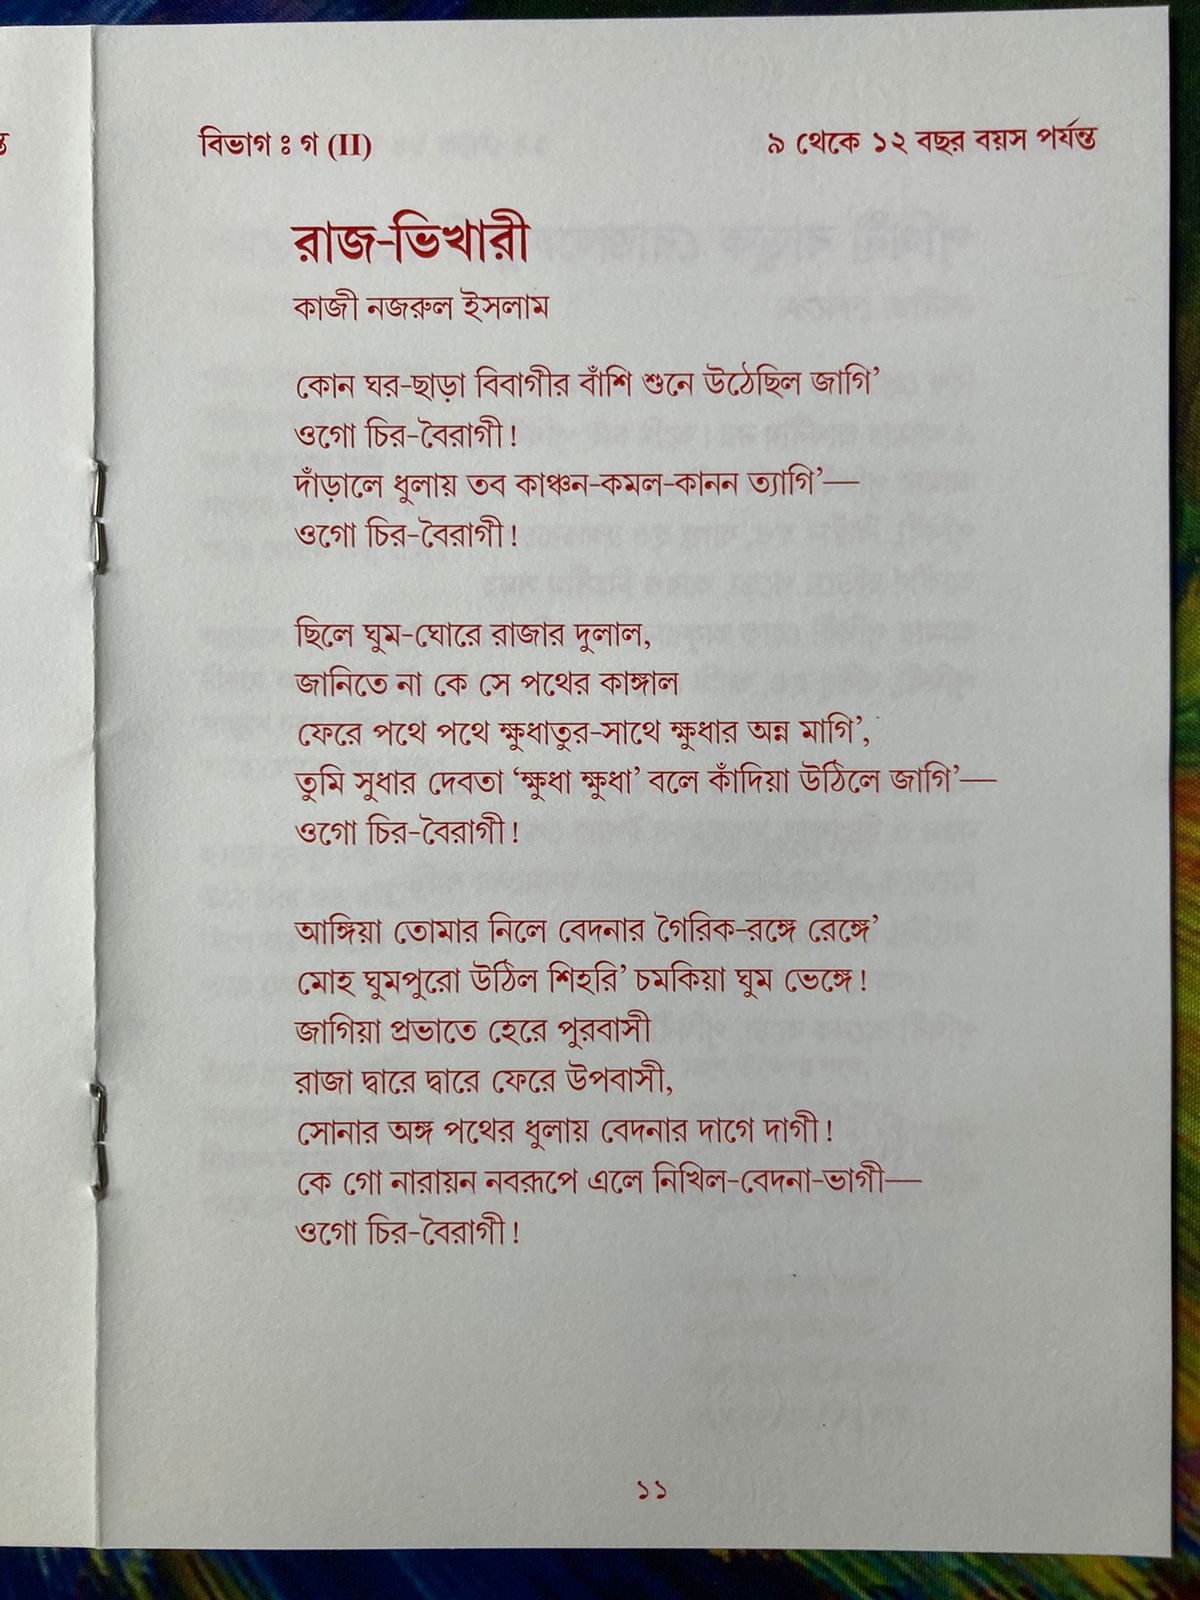 বিভাগ ঃ গ (II) ৯ থেকে ১২ বছর বয়স পর্যন্ত
রাজ-ভিখারী
কাজী নজরুল ইসলাম
কোন ঘর-ছাড়া বিবাগীর বাঁশি শুনে উঠেছিল জাগি’
ওগো চির-বৈরাগী!
দাঁড়ালে ধুলায় তব কাঞ্চন-কমল-কানন ত্যাগি’—
ওগো চির-বৈরাগী!
ছিলে ঘুম-ঘোরে রাজার দুলাল,
জানিতে না কে সে পথের কাঙ্গাল
ফেরে পথে পথে ক্ষুধাতুর-সাথে ক্ষুধার অন্ন মাগি’,
তুমি সুধার দেবতা ‘ক্ষুধা ক্ষুধা’ বলে কাঁদিয়া উঠিলে জাগি’—
ওগো চির-বৈরাগী!
আঙ্গিয়া তোমার নিলে বেদনার গৈরিক-রঙ্গে রেঙ্গে’
মোহ ঘুমপুরো উঠিল শিহরি’ চমকিয়া ঘুম ভেঙ্গে!
জাগিয়া প্রভাতে হেরে পুরবাসী
রাজা দ্বারে দ্বারে ফেরে উপবাসী,
সোনার অঙ্গ পথের ধুলায় বেদনার দাগে দাগী!
কে গো নারায়ন নবরূপে এলে নিখিল-বেদনা-ভাগী—
ওগো চির-বৈরাগী!
১১